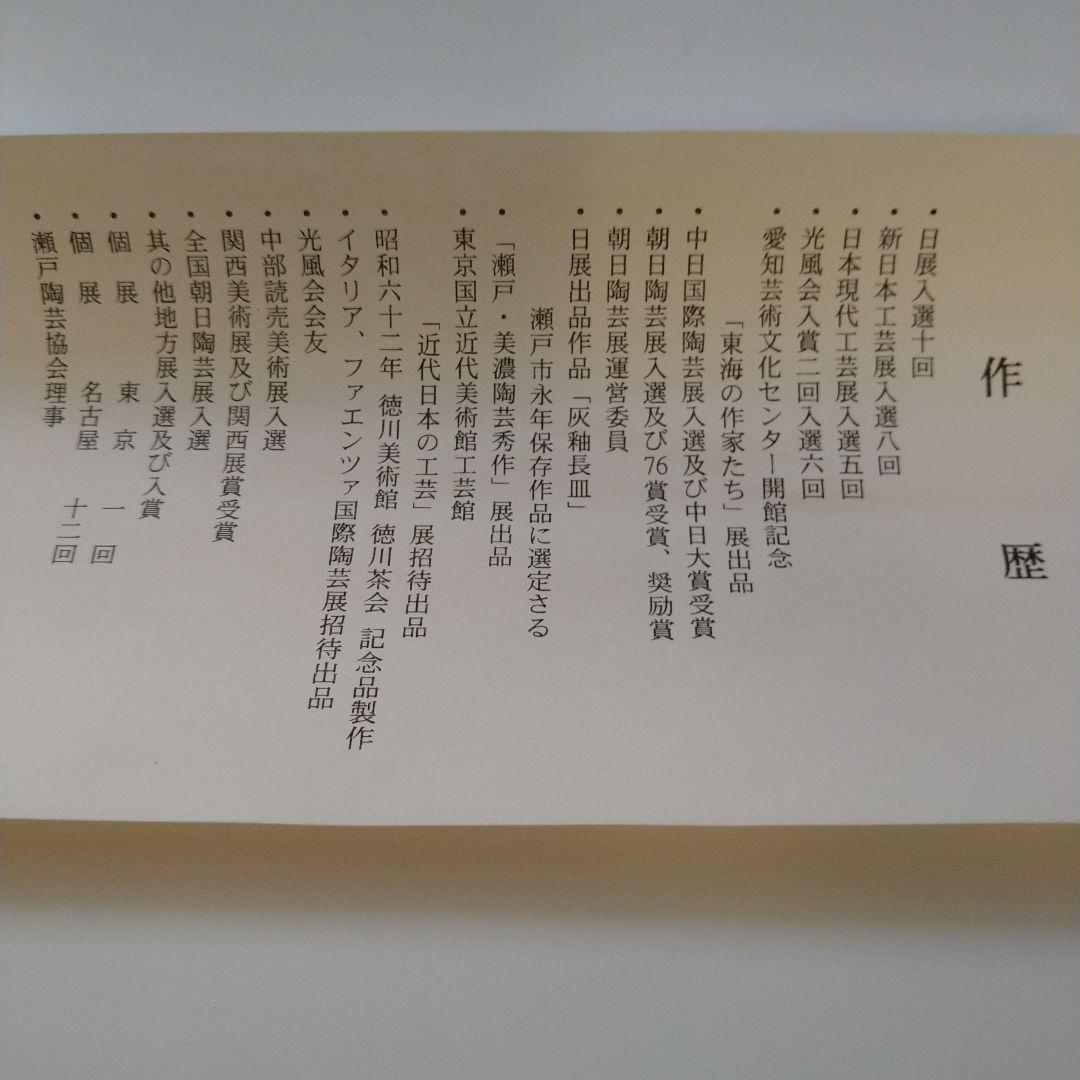 作歴
・日展入選十回
・新日本工芸展入選八回
・日本現代工芸展入選五回
・光風会入賞二回入選六回
・愛知芸術文化センター開館記念
「東海の作家たち」展出品
・中日国際陶芸展入選及び中日大賞受賞
・朝日陶芸展入選及び76賞受賞、奨励賞
・朝日陶芸展運営委員
・日展出品作品「灰釉長皿」
瀬戸市永年保存作品に選定さる
・「瀬戸・美濃陶芸秀作」展出品
・東京国立近代美術館工芸館
「近代日本の工芸」展招待出品
・昭和六十二年 徳川美術館 徳川茶会 記念品製作
・イタリア、ファエンツァ国際陶芸展招待出品
・光風会会友
・中部読売美術展入選
・関西美術展及び関西展賞受賞
・全国朝日陶芸展入選
・其の他地方展入選及び入賞
・個展 東京 一回
・個展 名古屋 十二回
・瀬戸陶芸協会理事